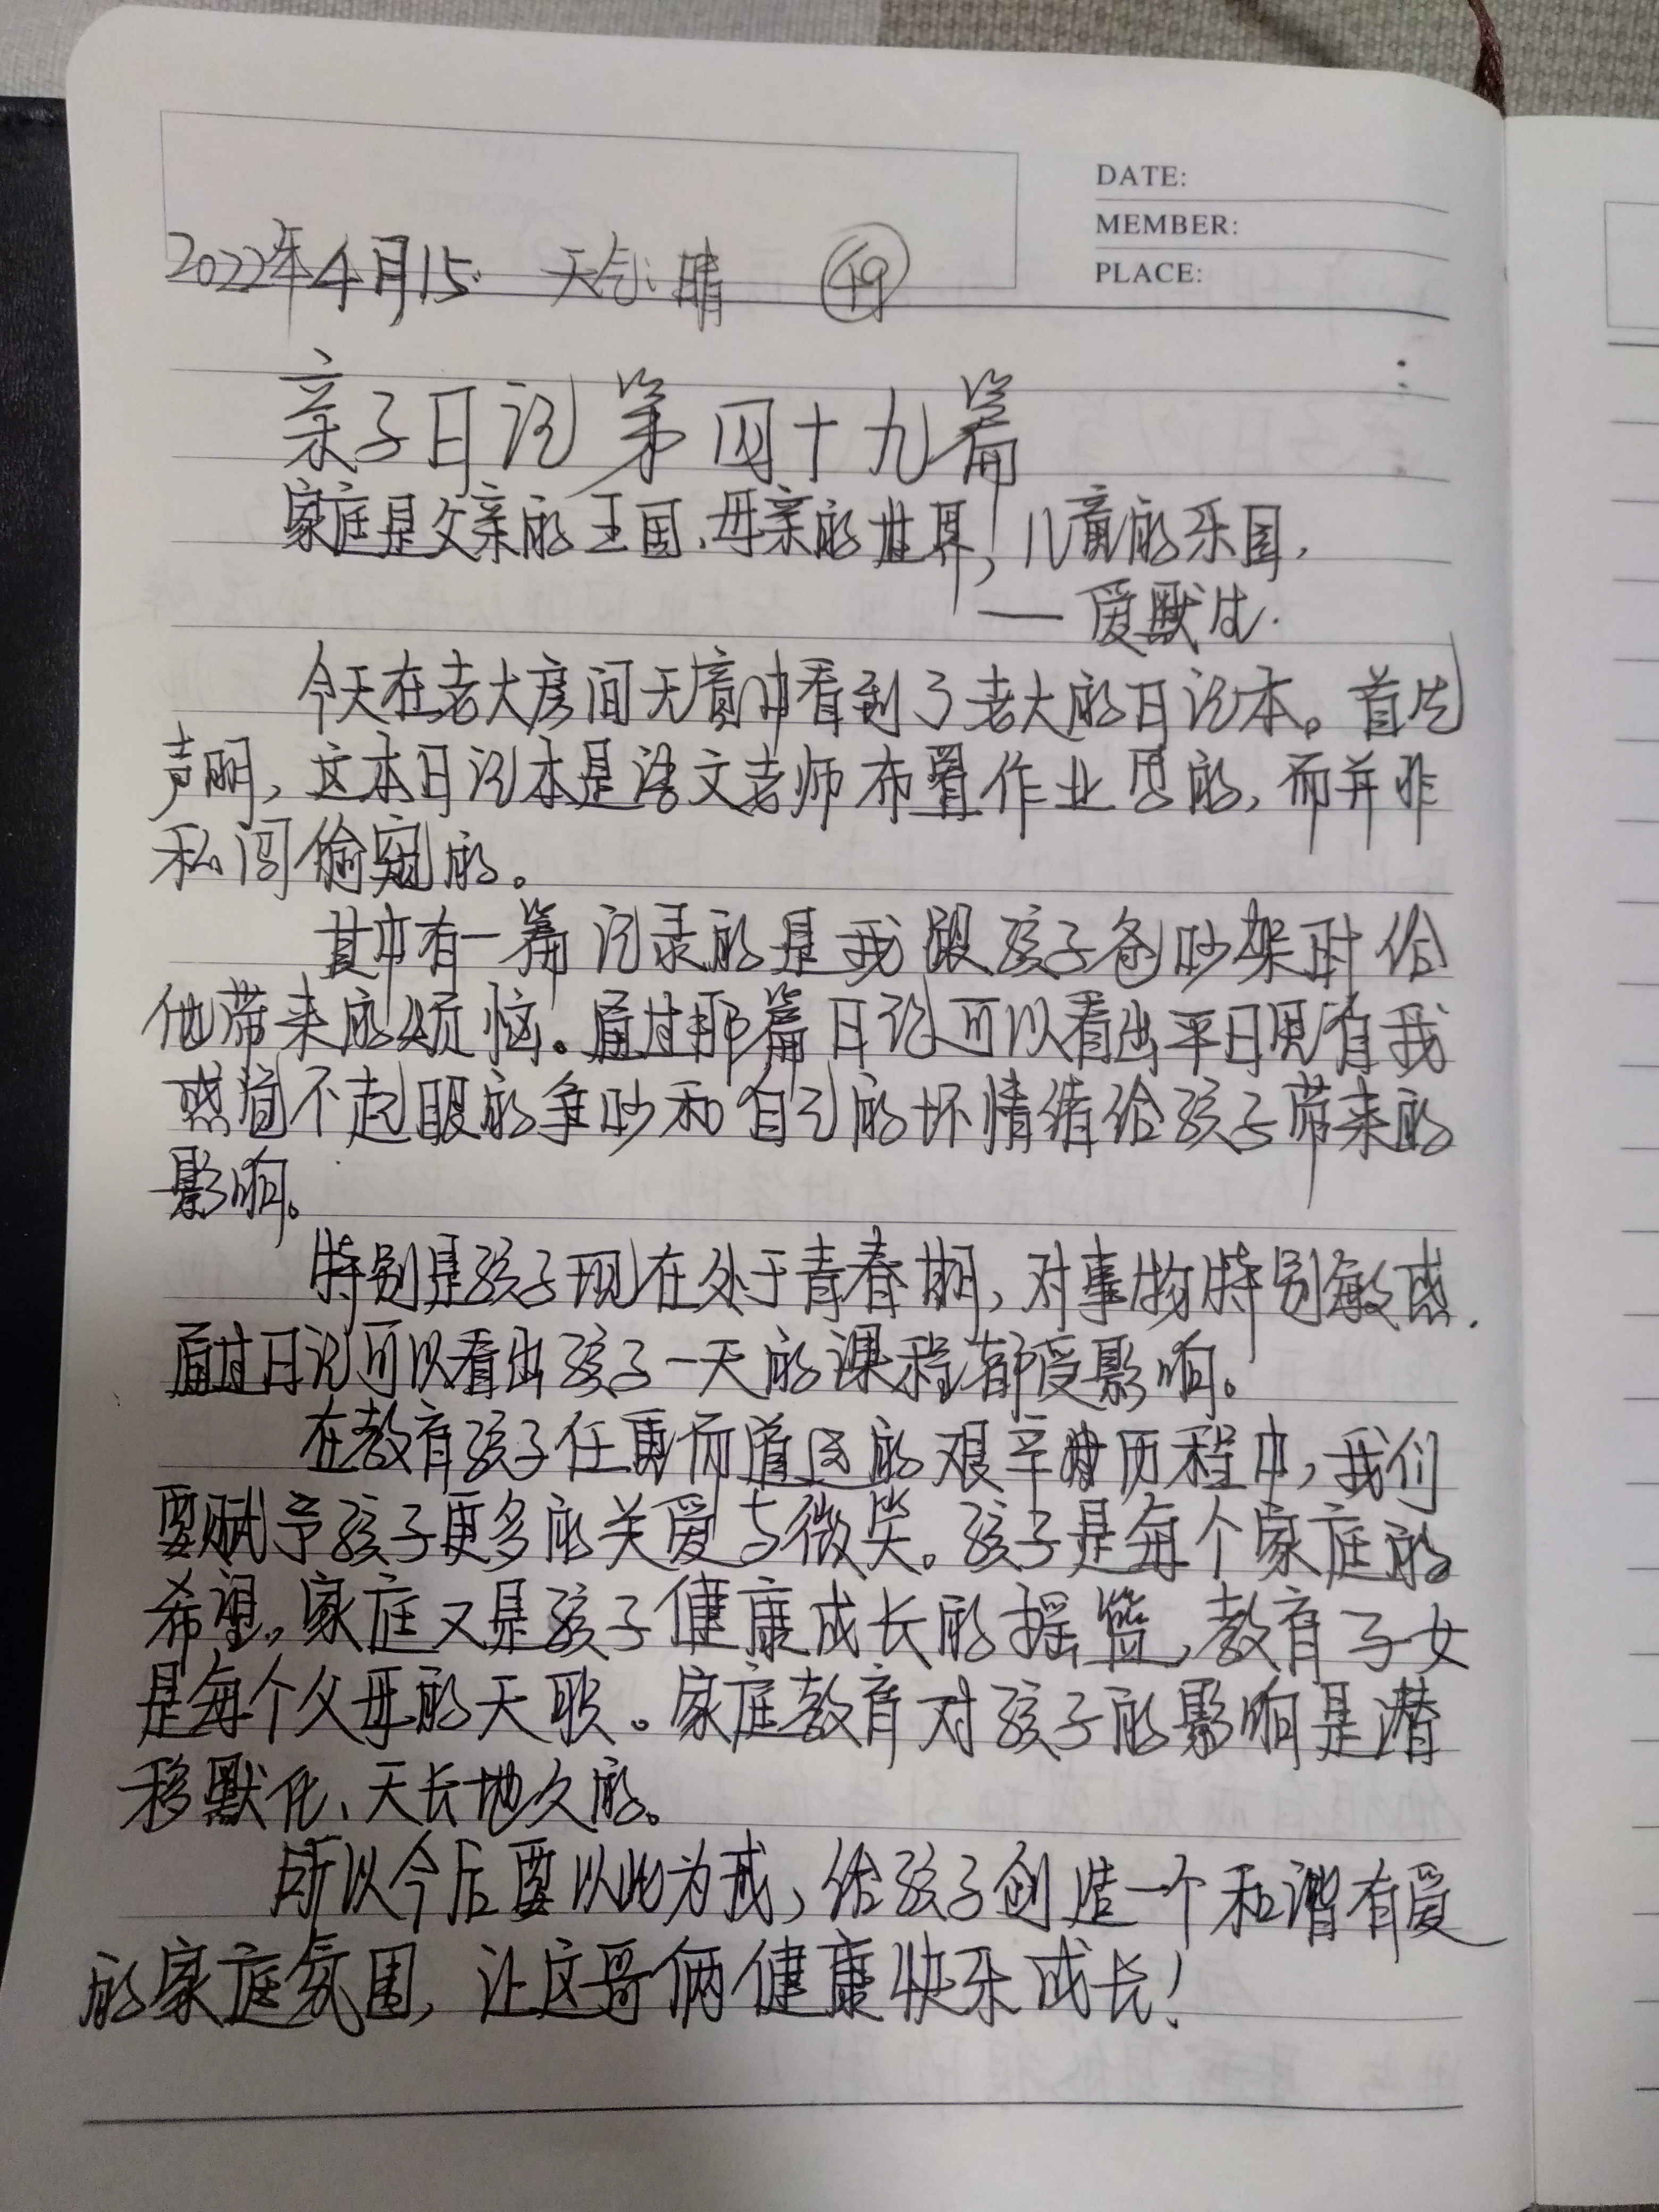 DATE:
MEMBER:
PLACE:
2022年4月15. 天气:晴 49
亲子日记第四十九篇
家庭是父亲的王国、母亲的世界,儿童的乐园.
—爱默生.
今天在老大房间无意中看到了老大的日记本。首先
声明,这本日记本是语文老师布置作业写的,而并非
私闯偷窥的。
其中有一篇记录的是我跟孩子爸吵架时给
他带来的烦恼。通过那篇日记可以看出平日里有我
感觉不起眼的争吵和自己的坏情绪给孩子带来的
影响。
特别是孩子现在处于青春期,对事物特别敏感.
通过日记可以看出孩子一天的课程都受影响。
在教育孩子任重而道远的艰辛的历程中,我们
要赋予孩子更多的关爱与微笑。孩子是每个家庭的
希望。家庭又是孩子健康成长的摇篮,教育子女
是每个父母的天职。家庭教育对孩子的影响是潜
移默化、天长地久的。
所以今后要以此为戒,给孩子创造一个和谐有爱
的家庭氛围,让这哥俩健康快乐成长!